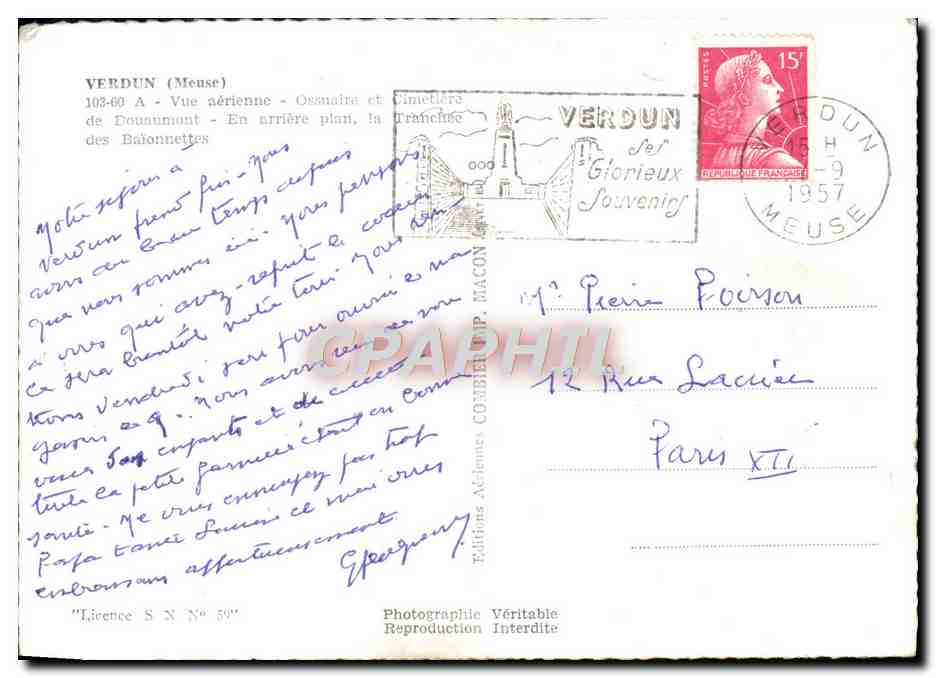 VERDUN (Meuse)
103-60 A - Vue aérienne - Ossuaire et Cimetière
de Douaumont - En arrière plan, la Tranchée
des Baïonnettes
VERDUN
Ses
Glorieux
Souvenirs
POSTES
15F
REPUBLIQUE FRANÇAISE
VERDUN
15 H
-9
1957
MEUSE
Notre séjour à
Verdun prend fin - Nous
avons du beau temps depuis
que nous sommes ici. Nous pensons
à vous qui avez repris le
Ce sera bientôt notre tour. Nous ren-
trons Vendredi soir pour ouvrir le ma-
gasin le 9. Nous avons reçu de nou-
velles des enfants et de
toute la petite famille étant en bonne
santé - Ne vous ennuyez pas trop
Papa tante et moi vous
embrassons affectueusement.
Mr Pierre Poirson
12 Rue Lacuée
Paris XII
Editions Aériennes COMBIER IMP. MACON
CPAPHIL
"Licence S N N° 59"
Photographie Véritable
Reproduction Interdite